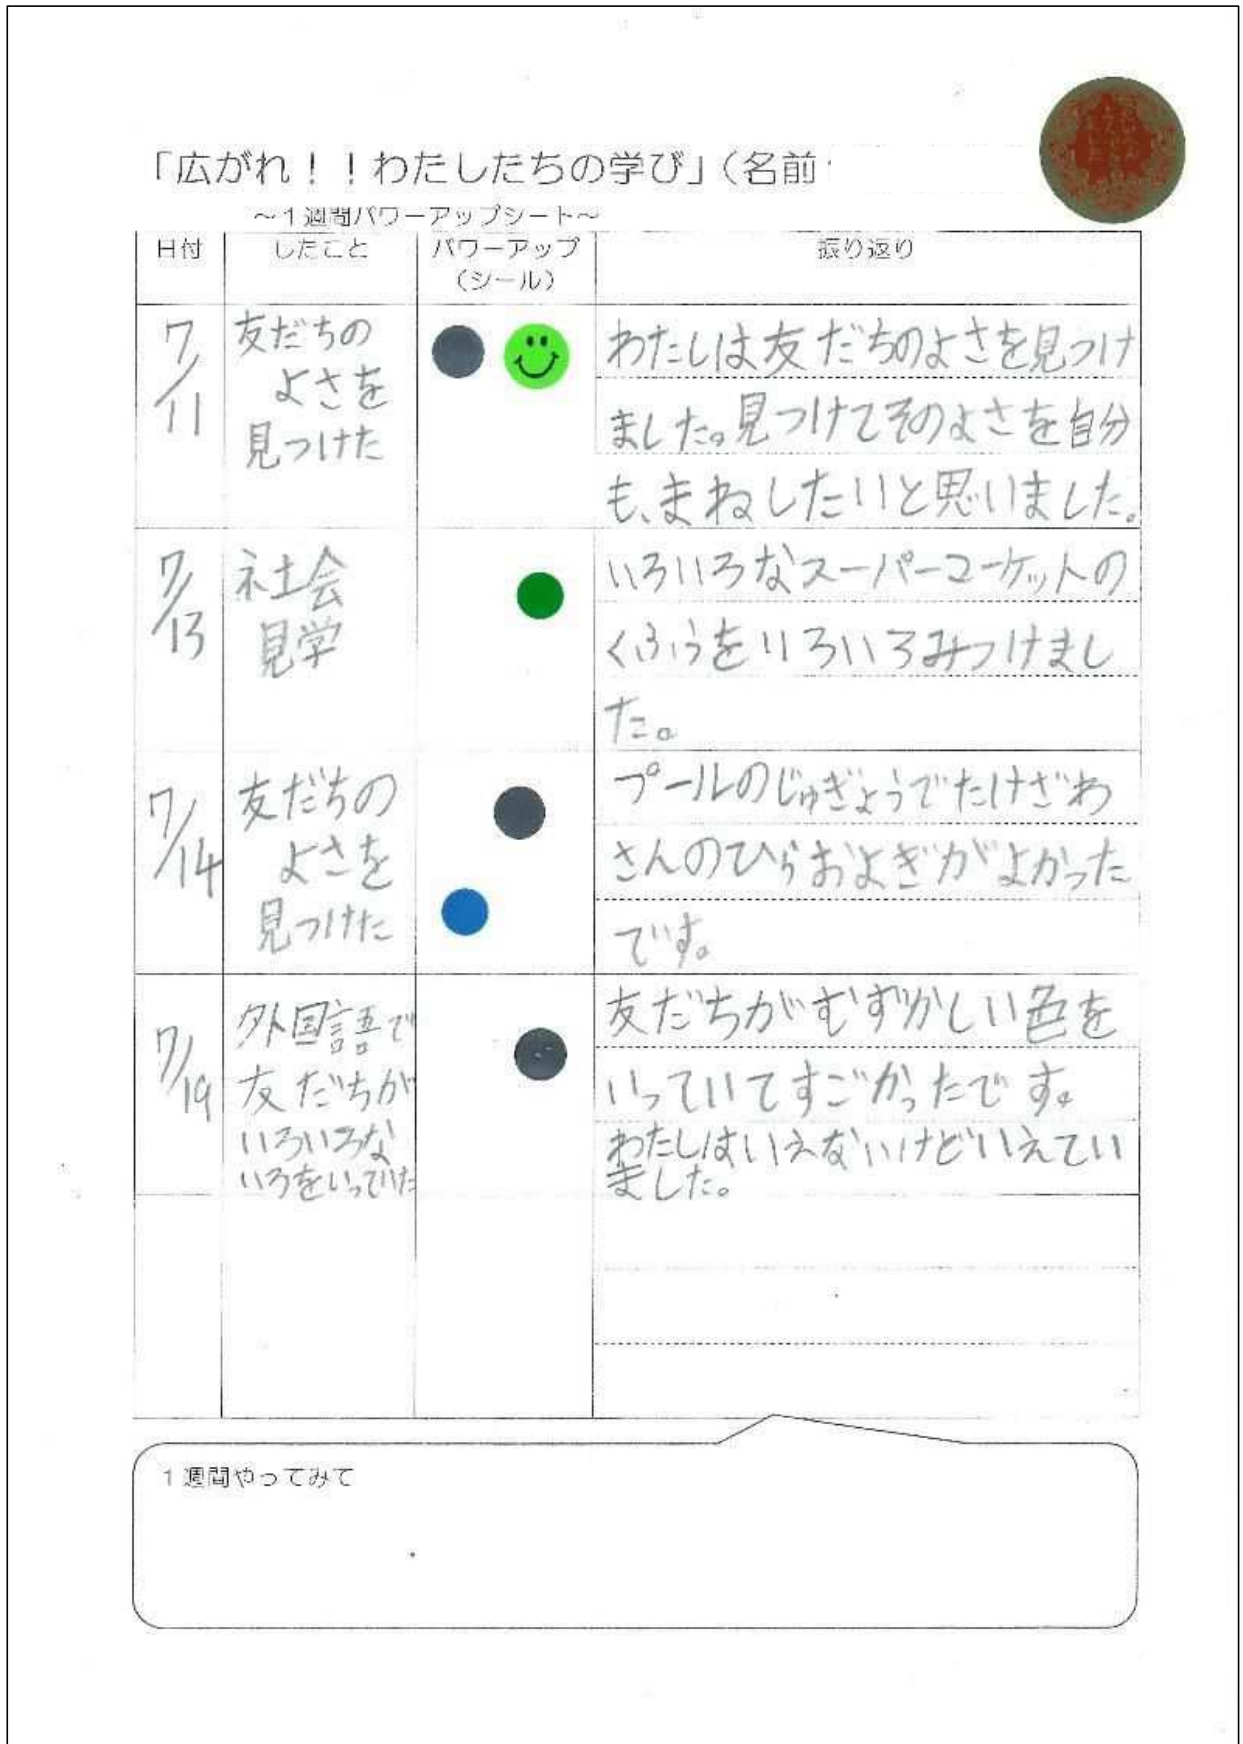 「広がれ！！わたしたちの学び」（名前
～1週間パワーアップシート～
日付
したこと
パワーアップ
（シール）
振り返り
7/11
友だちの
よさを
見つけた
わたしは友だちのよさを見つけ
ました。見つけてそのよさを自分
も、まねしたいと思いました。
7/13
社会
見学
いろいろなスーパーマーケットの
くふうをいろいろみつけまし
た。
7/14
友だちの
よさを
見つけた
プールのじゅぎょうでたけざわ
さんのひらおよぎがよかった
です。
7/19
外国語で
友だちが
いろいろな
いろをいっていた
友だちがむずかしい色を
いっていてすごかったです。
わたしはいえないけどいえてい
ました。
1週間やってみて